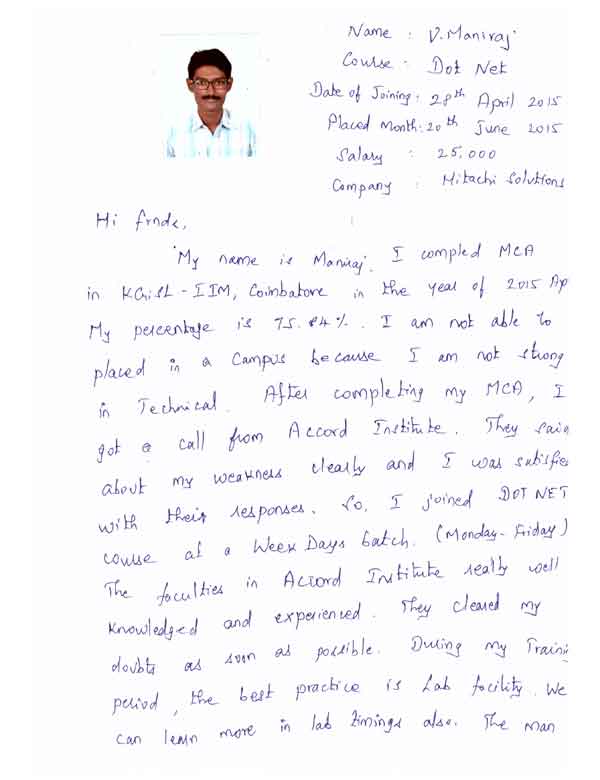 Name : V. Maniraj
Course : Dot Net
Date of Joining : 28th April 2015
Placed Month : 20th June 2015
Salary : 25,000
Company : Hitachi Solutions
Hi frnds,
My name is Maniraj. I compled MCA
in KGiSL - IIM, Coimbatore in the year of 2015 Ap
My percentage is 75.84%. I am not able to
placed in a Campus because I am not strong
in Technical. After completing my MCA, I
got a call from Accord Institute. They said
about my weakness clearly and I was satisfie
with their responses. So, I joined DOT NET
course at a Week Days batch. (Monday - Friday)
The faculties in Accord Institute really well
knowledged and experienced. They cleared my
doubts as soon as possible. During my Trainin
period, the best practice is Lab facility. We
can learn more in lab timings also. The man